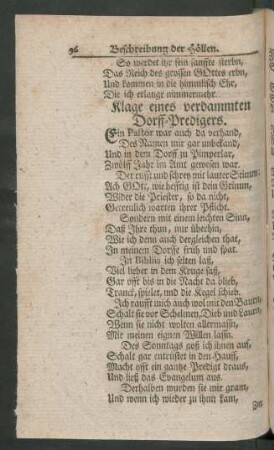 96 Beschreibung der Höllen.
So werdet ihr fein sanffte sterbn,
Das Reich des grossen GOttes erbn,
Und kommen in die himmlisch Ehr,
Die ich erlange nimmermehr.
Klage eines verdammten
Dorff-Predigers.
Ein Pastor war auch da verhand,
Des Namen mir gar unbekand,
Und in dem Dorff zu Pimperlay,
Zwölff Jahr im Amt gewesen war.
Der rufft und schrey mit lauter Stimm:
Ach GOtt, wie hefftig ist dein Grimm,
Wider die Priester, so da nicht,
Getreulich warten ihrer Pflicht.
Sondern mit einem leichten Sinn,
Daß Ihre thun, nur überhin,
Wie ich denn auch dergleichen that,
In meinem Dorffe fruh und spat.
In Biblia ich selten laß,
Viel lieber in dem Kruge saß,
Gar offt bis in die Nacht da blieb,
Tranck, spielet, und die Kegel schieb.
Ich raufft mich auch wol mit den Baurn,
Schalt sie vor Schelmen, Dieb und Laurn,
Wenn sie nicht wolten allermassn,
Mit meinen eignen Willen lassn.
Des Sonntags goß ich ihnen auf,
Schalt gar entrüstet in den Hauff,
Macht offt ein gantze Predigt draus,
Und ließ das Evangelum aus.
Derhalben wurden sie mir gram,
Und wenn ich wieder zu ihnn kam,